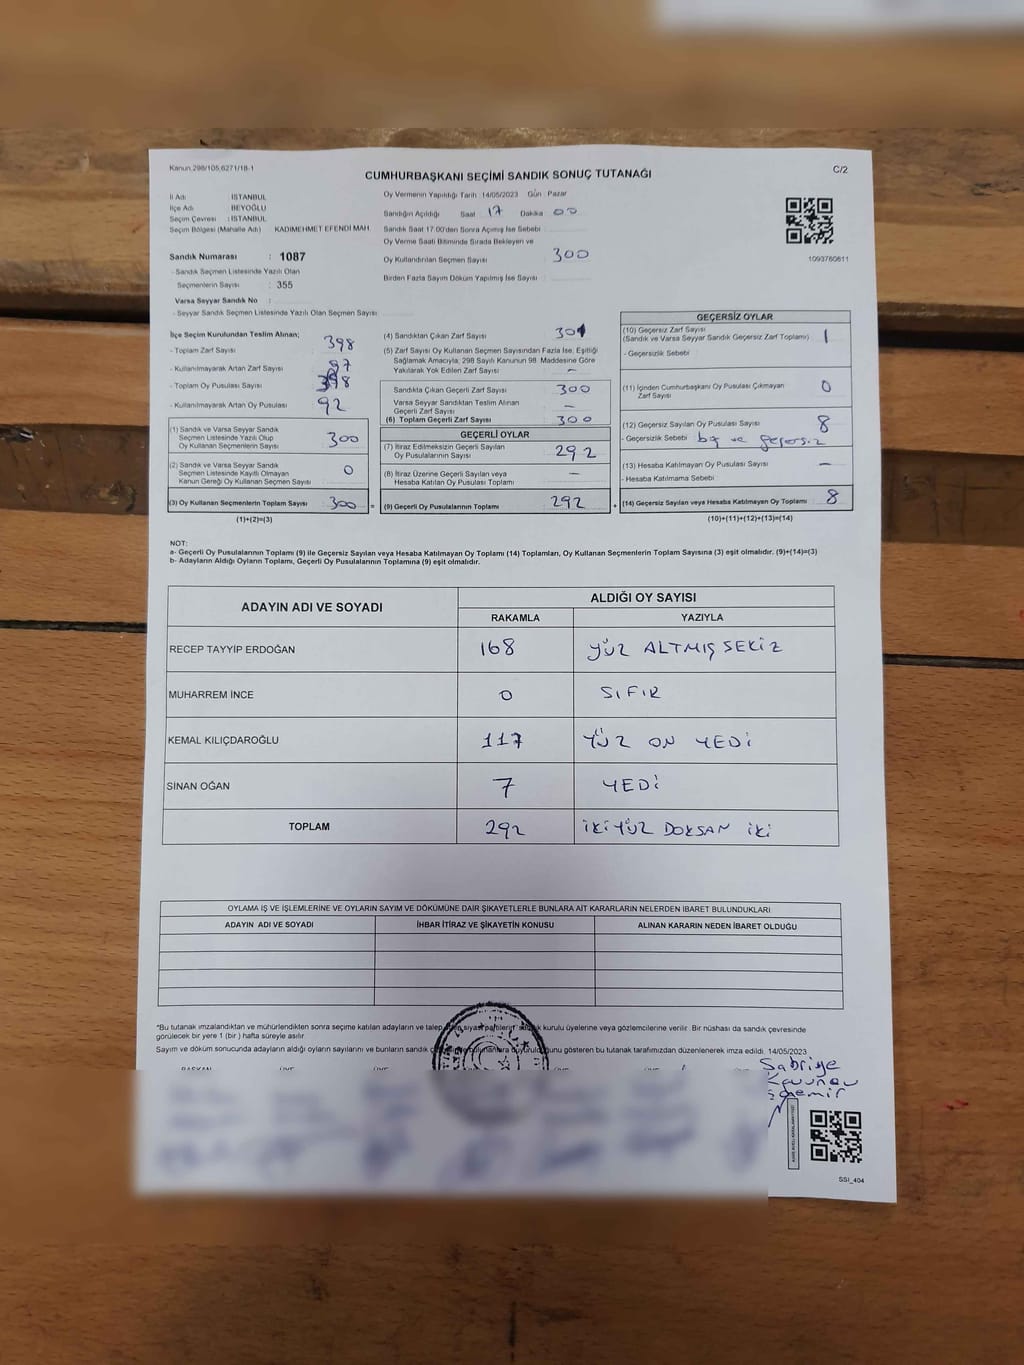 Kanun.298/105,6271/18-1
CUMHURBAŞKANI SEÇİMİ SANDIK SONUÇ TUTANAĞI
C/2
İl Adı : İSTANBUL
İlçe Adı : BEYOĞLU
Seçim Çevresi : İSTANBUL
Seçim Bölgesi (Mahalle Adı) KADIMEHMET EFENDİ MAH.
Sandık Numarası : 1087
- Sandık Seçmen Listesinde Yazılı Olan
Seçmenlerin Sayısı : 355
Varsa Seyyar Sandık No :
- Seyyar Sandık Seçmen Listesinde Yazılı Olan Seçmen Sayısı
Oy Vermenin Yapıldığı Tarih :14/05/2023 Gün : Pazar
Sandığın Açıldığı Saat 17 Dakika 00
Sandık Saat 17.00'den Sonra Açımış İse Sebebi
Oy Verme Saati Bitiminde Sırada Bekleyen ve
Oy Kullandırılan Seçmen Sayısı 300
Birden Fazla Sayım Döküm Yapılmış İse Sayısı
1093760811
İlçe Seçim Kurulundan Teslim Alınan;
- Toplam Zarf Sayısı 398
- Kullanılmayarak Artan Zarf Sayısı 97
- Toplam Oy Pusulası Sayısı 398
- Kullanılmayarak Artan Oy Pusulası 92
(1) Sandık ve Varsa Seyyar Sandık
Seçmen Listesinde Yazılı Olup
Oy Kullanan Seçmenlerin Sayısı 300
(2) Sandık ve Varsa Seyyar Sandık
Seçmen Listesinde Kayıtlı Olmayan
Kanun Gereği Oy Kullanan Seçmen Sayısı 0
(3) Oy Kullanan Seçmenlerin Toplam Sayısı 300 =
(1)+(2)=(3)
(4) Sandıktan Çıkan Zarf Sayısı 301
(5) Zarf Sayısı Oy Kullanan Seçmen Sayısından Fazla İse, Eşitliği
Sağlamak Amacıyla; 298 Sayılı Kanunun 98. Maddesine Göre
Yakılarak Yok Edilen Zarf Sayısı –
Sandıkta Çıkan Geçerli Zarf Sayısı 300
Varsa Seyyar Sandıktan Teslim Alınan
Geçerli Zarf Sayısı –
(6) Toplam Geçerli Zarf Sayısı 300
GEÇERLİ OYLAR
(7) İtiraz Edilmeksizin Geçerli Sayılan
Oy Pusulalarının Sayısı 292
(8) İtiraz Üzerine Geçerli Sayılan veya
Hesaba Katılan Oy Pusulası Toplamı –
(9) Geçerli Oy Pusulalarının Toplamı 292 +
GEÇERSİZ OYLAR
(10) Geçersiz Zarf Sayısı
(Sandık ve Varsa Seyyar Sandık Geçersiz Zarf Toplamı) 1
- Geçersizlik Sebebi
(11) İçinden Cumhurbaşkanı Oy Pusulası Çıkmayan
Zarf Sayısı 0
(12) Geçersiz Sayılan Oy Pusulası Sayısı 8
- Geçersizlik Sebebi boş ve geçersiz
(13) Hesaba Katılmayan Oy Pusulası Sayısı –
- Hesaba Katılmama Sebebi
(14) Geçersiz Sayılan veya Hesaba Katılmayan Oy Toplamı 8
(10)+(11)+(12)+(13)=(14)
NOT:
a- Geçerli Oy Pusulalarının Toplamı (9) ile Geçersiz Sayılan veya Hesaba Katılmayan Oy Toplamı (14) Toplamları, Oy Kullanan Seçmenlerin Toplam Sayısına (3) eşit olmalıdır. (9)+(14)=(3)
b- Adayların Aldığı Oyların Toplamı, Geçerli Oy Pusulalarının Toplamına (9) eşit olmalıdır.
ADAYIN ADI VE SOYADI ALDIĞI OY SAYISI
RAKAMLA YAZIYLA
RECEP TAYYİP ERDOĞAN 168 YÜZ ALTMIŞ SEKİZ
MUHARREM İNCE 0 SIFIR
KEMAL KILIÇDAROĞLU 117 YÜZ ON YEDİ
SİNAN OĞAN 7 YEDİ
TOPLAM 292 İKİ YÜZ DOKSAN İKİ
OYLAMA İŞ VE İŞLEMLERİNE VE OYLARIN SAYIM VE DÖKÜMÜNE DAİR ŞİKAYETLERLE BUNLARA AİT KARARLARIN NELERDEN İBARET BULUNDUKLARI
ADAYIN ADI VE SOYADI İHBAR İTİRAZ VE ŞİKAYETİN KONUSU ALINAN KARARIN NEDEN İBARET OLDUĞU
*Bu tutanak imzalandıktan ve mühürlendikten sonra seçime katılan adayların ve talep siyasi kurulu üyelerine veya gözlemcilerine verilir. Bir nüshası da sandık çevresinde
görülecek bir yere 1 (bir ) hafta süreyle asılır.
Sayım ve döküm sonucunda adayların aldığı oyların sayılarını ve bunların sandık gösteren bu tutanak tarafımızdan düzenlenerek imza edildi. 14/05/2023
BAŞKAN ÜYE ÜYE
Sabriye
SSI_404